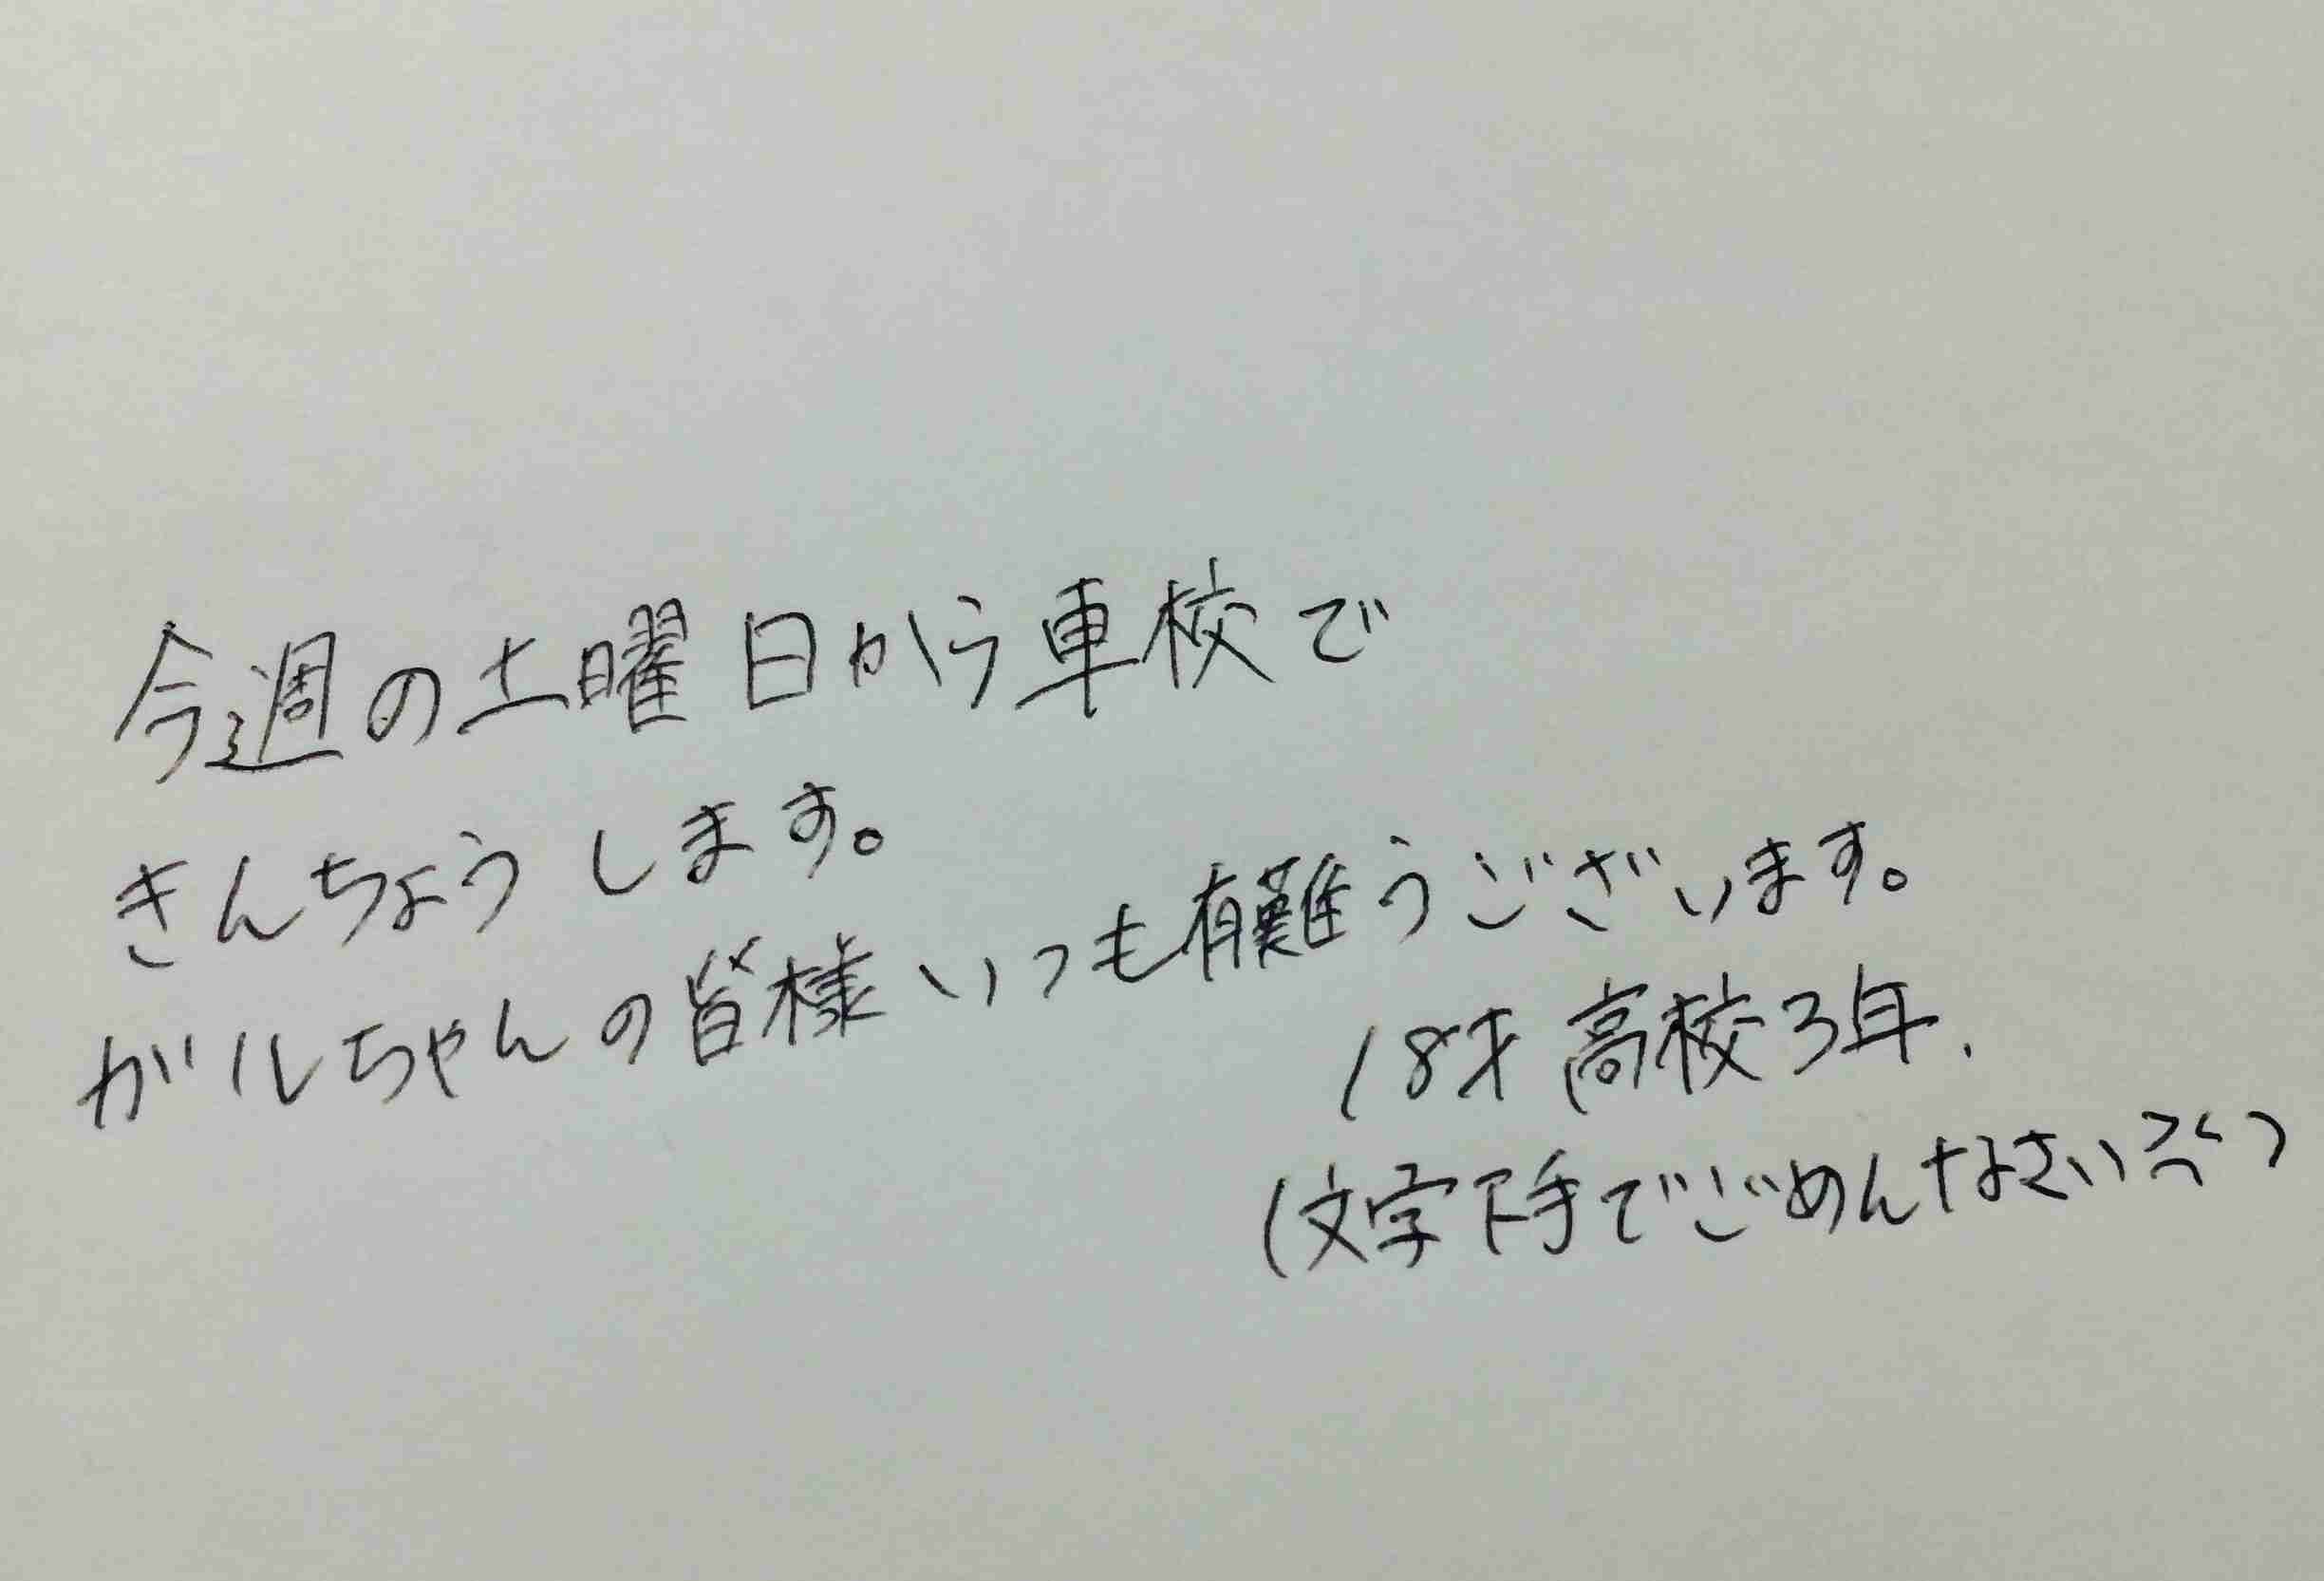 今週の土曜日から車校で
きんちょうします。
がルちゃんの皆様いつも有難うございます。
18才高校3年.
(文字下手でごめんなさい